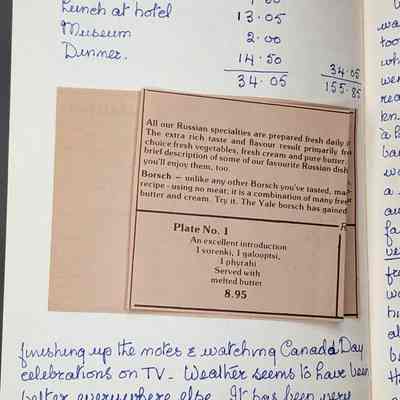 Lunch at hotel 13.05
Museum 2.00
Dinner. 14.50
34.05 34.05
155.85
All our Russian specialties are prepared fresh daily
The extra rich taste and flavour result primarily fro
choice fresh vegetables, fresh cream and pure butter.
brief description of some of our favourite Russian dish
you'll enjoy them, too.
Borsch — unlike any other Borsch you've tasted, ma
recipe - using no meat; it is a combination of many fre
butter and cream. Try it. The Yale borsch has gained
Plate No. 1
An excellent introduction
1 vorenki, 1 galooptsi,
1 phyrahi
Served with
melted butter
8.95
finishing up the notes & watching Canada Day
celebrations on TV - Weather seems to have been
better everywhere else. It has been very